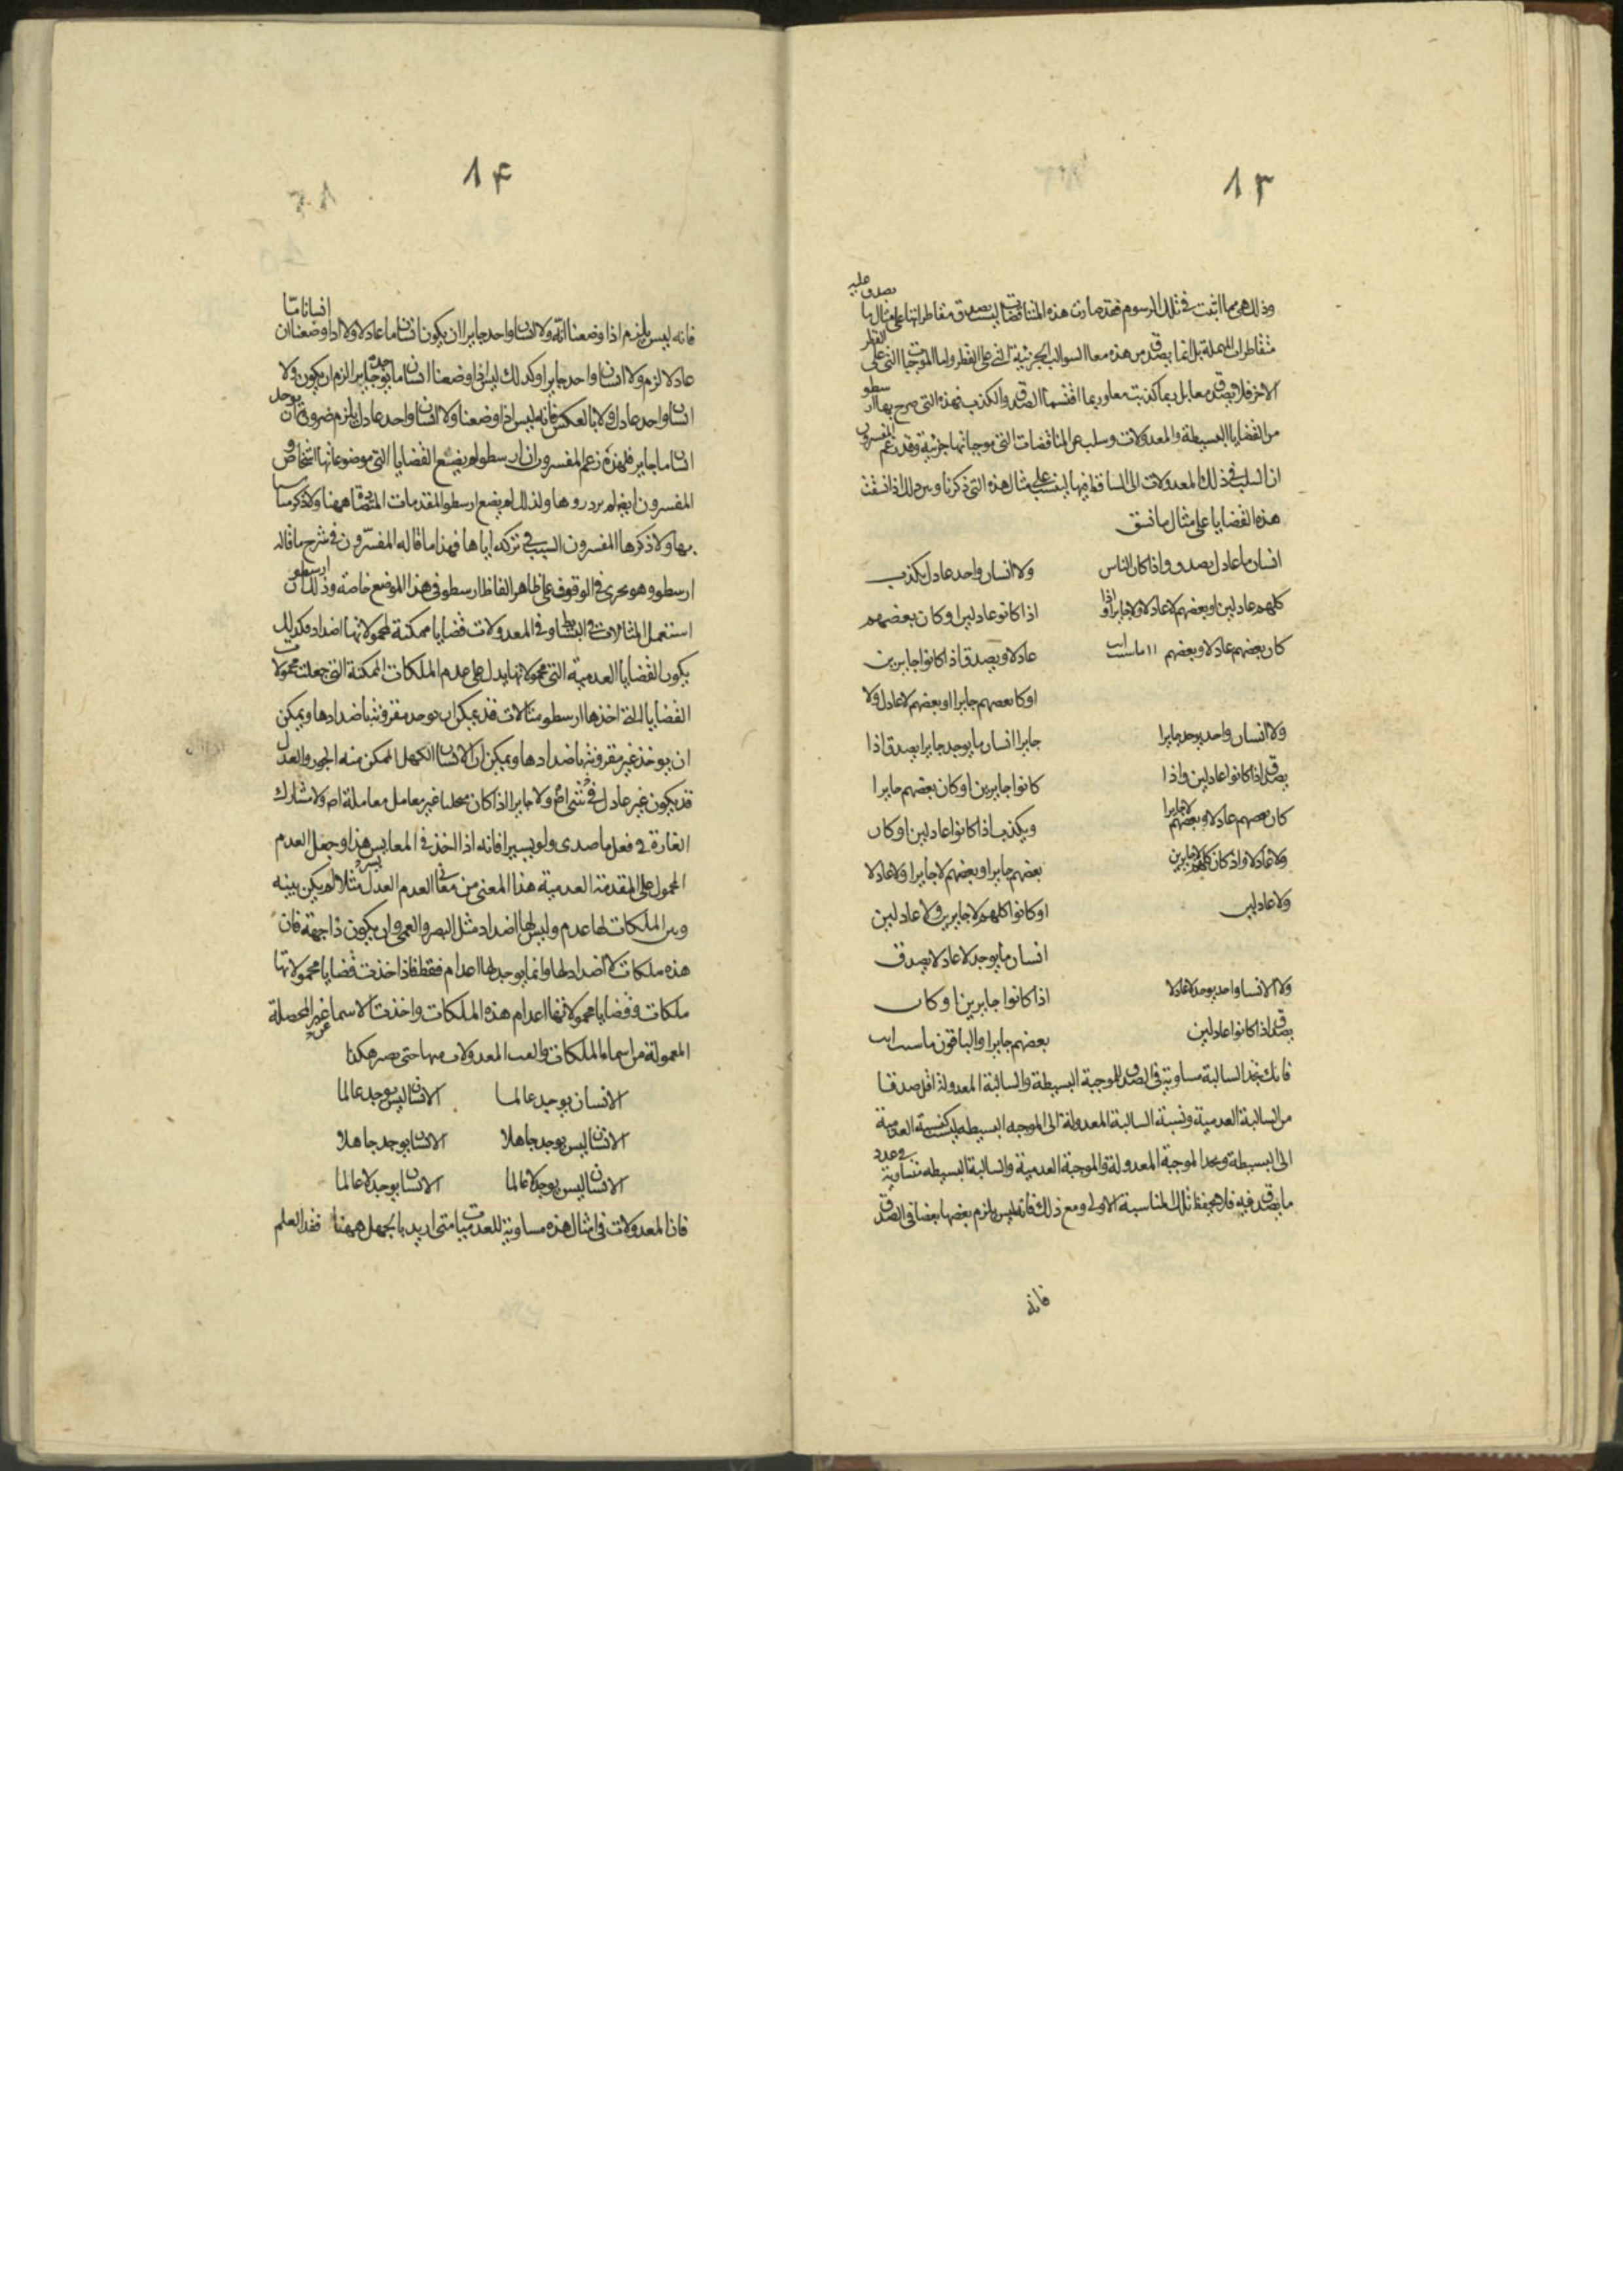 ١٣
وذلك هو مما اثبت في تلك الرسوم فقد صارت هذه المناقضات ليست تصدق مقاطراتها على مثال ما يصدق عليه
متقاطرات المهملة بل انما يصدق من هذه معا السوالب الجزئية التي على القطر واما الموجبات التي على القطر
الاخر فلا يصدق معا بل ربما كذبت معا وربما اقتسما الصدق والكذب فهذه التي صرح بها ارسطو
من القضايا البسيطة والمعدولات وسلب عن المناقضات التي موجباتها جزئية وقد زعم المفسرون
ان السلب في ذلك المعدولات الى البسائط فيها ليست على مثال هذه التي ذكرنا وبين ذلك اذا نسقت
هذه القضايا على مثال ما نسق
انسان ما عادل يصدق واذا كان الناس
ولا انسان واحد عادل يكذب
كلهم عادلين او بعضهم لا عادلا ولا جايرا واذا
اذا كانوا عادلين او كان بعضهم
كان بعضهم عادلا وبعضهم
عادلا ويصدق اذا كانوا جايرين
او كان بعضهم جايرا او بعضهم لا عادل ولا
ولا انسان واحد يوجد جايرا
جايرا انسان ما يوجد جايرا يصدق اذا
يصدق اذا كانوا عادلين واذا
كانوا جايرين او كان بعضهم جايرا
كان بعضهم عادلا وبعضهم لا جايرا
ويكذب اذا كانوا عادلين او كان
ولا عادلا واذ كان كلهم لا جايرين
بعضهم جايرا وبعضهم لا جايرا ولا عادلا
ولا عادلين
او كانوا كلهم لا جايرين ولا عادلين
انسان ما يوجد لا عادلا يصدق
ولا الانسان واحد يوجد لا عادلا
اذا كانوا جايرين او كان
يصدق اذا كانوا عادلين
بعضهم جايرا والباقون
فانك تجد السالبة مساوية في الصدق للموجبة البسيطة والسالبة المعدولة اقل صدقا
من السالبة العدمية ونسبة السالبة المعدولة الى الموجبه البسيطه ليست كنسبة العدمية
الى البسيطة وتجد الموجبة المعدولة والموجبة العدمية والسالبة البسيطه متساوية في عدد
ما يصدق فيه فلا تحفظ تلك المناسبة الاولى ومع ذلك فانه ليس يلزم بعضها بعضا في الصدق
فانه
١۴
فانه ليس يلزم اذا وضعنا انه ولا انسان واحد جايرا ان يكون انسان ما عادلا ولا اذا وضعنا ان انسانا ما
عادلا لزم ولا انسان واحد جايرا وكذلك ليس اذا وضعنا انسان ما يوجد جايرا لزم ان يكون ولا
انسان واحد عادل ولا بالعكس فانه ليس اذا وضعنا ولا انسان واحد عادل يلزم ضرورة ان يوجد
انسان ما جاير فلهذه زعم المفسرون ان ارسطو لم يضع القضايا التي موضوعاتها اشخاص و
المفسرون ولذلك لم يضع ارسطو المقدمات المتضادة ههنا ولا ذكر
بها ولا ذكرها المفسرون السبب في تركه اياها فهذا ما قاله المفسرون في شرح ما قاله
ارسطو وهو يجري في الوقوف على ظاهر الفاظ ارسطو في هذا الموضع خاصة وذلك ان ارسطو
استعمل المثالات في البسائط وفي المعدولات قضايا ممكنة لمحمولاتها اضداد فكذلك
يكون القضايا العدمية التي محمولاتها يدل على عدم الملكات الممكنة التي جعلت محمولات
القضايا التي اخذها ارسطو مثالات قد يمكن ان توجد مقرونة باضدادها ويمكن
ان يوخذ غير مقرونة باضدادها ويمكن ان الانسان الكهل الممكن منه الجور والعدل
قد يكون غير عادل في شي ما ولا جايرا اذا كان غير معامل معاملة ولا مشارك
في فعل ولو يسيرا فانه اذا اخذ هذا وجعل العدم
المحمول على المقدمة العدمية هذا المعنى من معاني العدم العدل مثلا لم يكن بينه
وبين الملكات لها عدم وليس لها اضداد مثل البصر والعمى وان يكون ذا جهة فان
هذه ملكات لا اضداد لها وانما يوجد لها اعدام فقط فاذا اخذت قضايا محمولاتها
ملكات وقضايا محمولاتها اعدام هذه الملكات واخذت الاسما غير المحصلة
المعمولة من اسماء الملكات والفت المعدولات منها حتى يصير هكذا
الانسان يوجد عالما الانسان ليس يوجد عالما
الانسان ليس يوجد جاهلا الانسان يوجد جاهلا
الانسان ليس يوجد لا عالما الانسان يوجد لا عالما
فاذا المعدولات في امثال هذه مساوية للعدميات متى اريد بالجهل ههنا فقد العلم